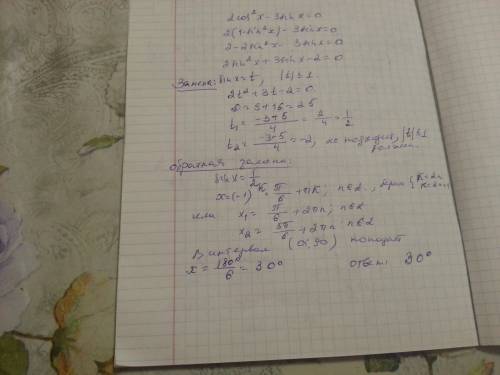 2cos²x - 3sinx = 0
2(1-sin²x) - 3sinx = 0
2 - 2sin²x - 3sinx = 0
2sin²x + 3sinx - 2 = 0
Замена: sinx = t, |t| ≤ 1
2t² + 3t - 2 = 0
D = 9 + 16 = 25
t₁ = (-3+5)/4 = 2/4 = 1/2
t₂ = (-3-5)/4 = -2, не подходит, |t| ≤ 1
Обратная замена:
sinx = 1/2
x = (-1)ᵏ π/6 + πk; n∈Z, при { k=2n
или x₁ = π/6 + 2πn; n∈Z
x₂ = 5π/6 + 2πn; n∈Z
В интервал (0; 90) попадает
x = 180°/6 = 30° ответ: 30°